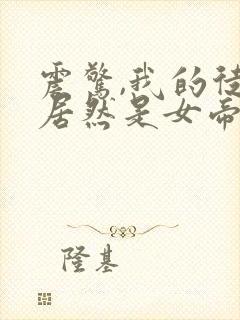 震惊,我的徒
居然是女帝
隆基